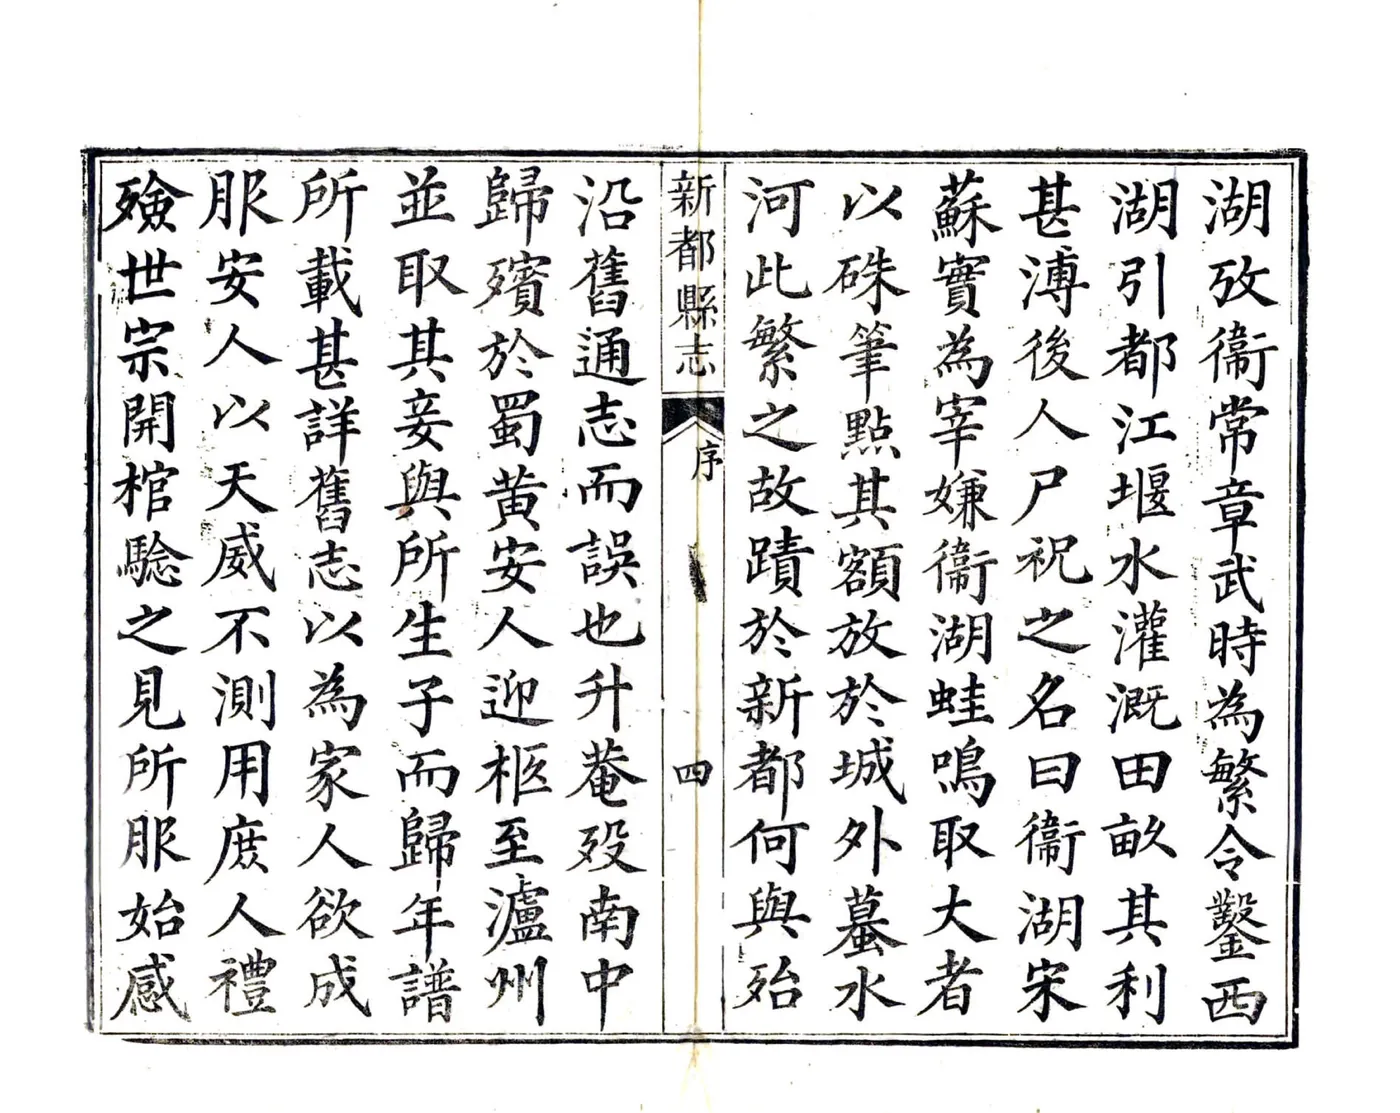 湖攷衞常章武時為繁令鑿西
湖引都江堰水灌溉田畝其利
甚溥後人尸祝之名曰衞湖宋
蘇實為宰嫌衞湖蛙鳴取大者
以硃筆點其額放於城外蟇水
河此繁之故蹟於新都何與殆
新都縣志
序
四
沿舊通志而誤也升菴歿南中
歸殯於蜀黄安人迎柩至瀘州
並取其妾與所生子而歸年譜
所載甚詳舊志以為家人欲成
服安人以天威不測用庶人禮
殮世宗開棺驗之見所服始感